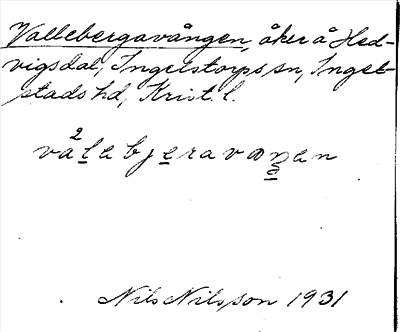 Vallebergavången, åker å Hed-
vigsdal, Ingelstorps sn, Ingel-
stads hd, Krist. l.
Nils Nilsson 1931